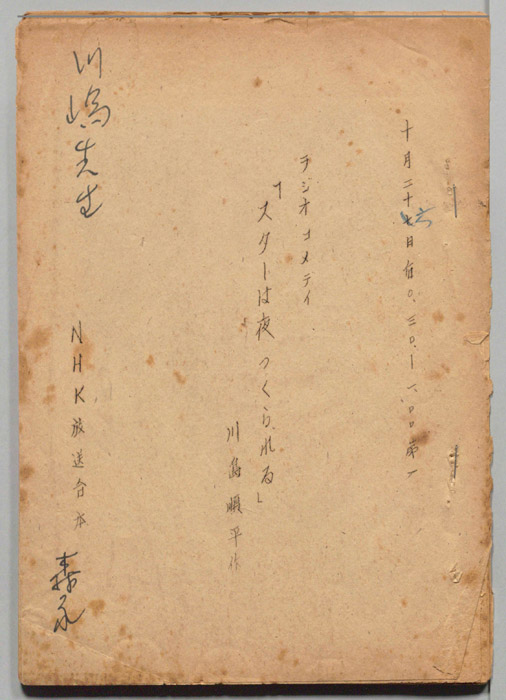 十月二十六日 自〇.三〇.―一.〇〇 第一
ラジオコメデイ
「スターは夜つくられる」
川島順平作
NHK放送台本
川嶋先生